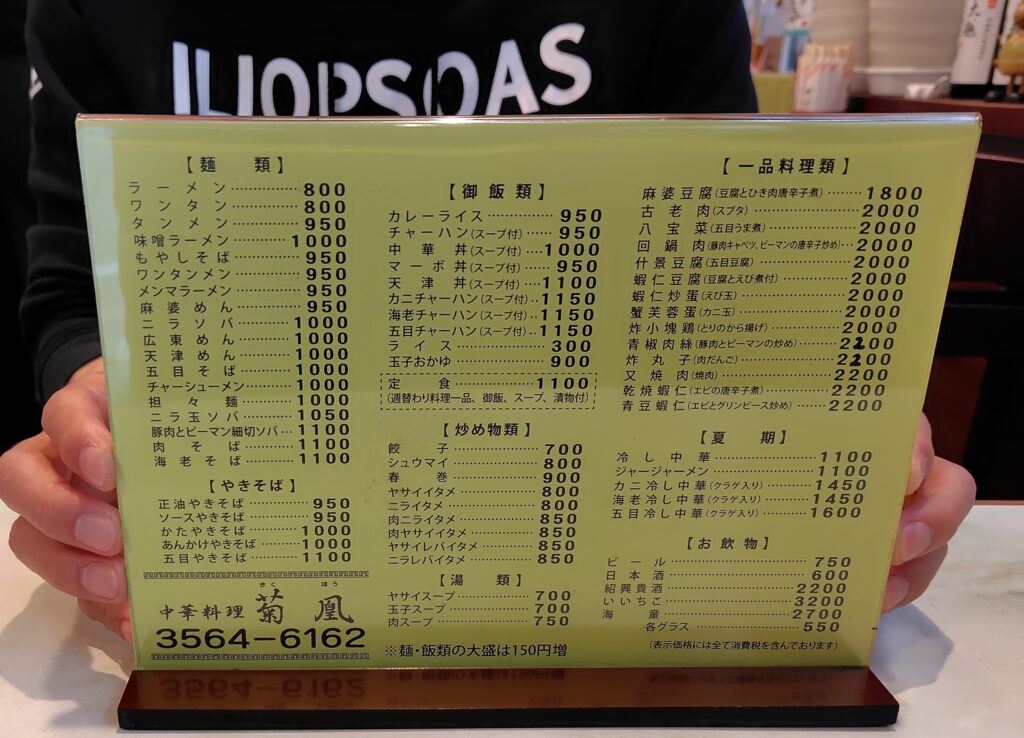 【麺 類】
ラーメン 800
ワンタン 800
タンメン 950
味噌ラーメン 1000
もやしそば 950
ワンタンメン 950
メンマラーメン 950
麻婆めん 950
ニラソバ 1000
広東めん 1000
天津めん 1000
五目そば 1000
チャーシューメン 1000
担々麺 1000
ニラ玉ソバ 1050
豚肉とピーマン細切ソバ 1100
肉そば 1100
海老そば 1100
【やきそば】
正油やきそば 950
ソースやきそば 950
かたやきそば 1000
あんかけやきそば 1000
五目やきそば 1100
きく ほう
中華料理 菊凰
3564-6162
【御飯類】
カレーライス 950
チャーハン(スープ付) 950
中華丼(スープ付) 1000
マーボ丼(スープ付) 950
天津丼(スープ付) 1100
カニチャーハン(スープ付) 1150
海老チャーハン(スープ付) 1150
五目チャーハン(スープ付) 1150
ライス 300
玉子おかゆ 900
定食 1100
(週替わり料理一品、御飯、スープ、漬物付)
【炒め物類】
餃子 700
シュウマイ 800
春巻 900
ヤサイイタメ 800
ニライタメ 800
肉ニライタメ 850
肉ヤサイイタメ 850
ヤサイレバイタメ 850
ニラレバイタメ 850
【湯 類】
ヤサイスープ 700
玉子スープ 700
肉スープ 750
※麺・飯類の大盛は150円増
【一品料理類】
麻婆豆腐(豆腐とひき肉唐辛子煮) 1800
古老肉(スブタ) 2000
八宝菜(五目うま煮) 2000
回鍋肉(豚肉キャベツ、ピーマンの唐辛子炒め) 2000
什景豆腐(五目豆腐) 2000
蝦仁豆腐(豆腐とえび煮付) 2000
蝦仁炒蛋(えび玉) 2000
蟹芙蓉蛋(カニ玉) 2000
炸小塊鶏(とりのから揚げ) 2000
青椒肉絲(豚肉とピーマンの炒め) 2200
炸丸子(肉だんご) 2200
叉焼肉(焼肉) 2200
乾焼蝦仁(エビの唐辛子煮) 2200
青豆蝦仁(エビとグリンピース炒め) 2200
【夏 期】
冷し中華 1100
ジャージャーメン 1100
カニ冷し中華(クラゲ入り) 1450
海老冷し中華(クラゲ入り) 1450
五目冷し中華(クラゲ入り) 1600
【お飲物】
ビール 750
日本酒 600
紹興貴酒 2200
いいちこ 3200
海童 2700
各グラス 550
(表示価格には全て消費税を含んでおります)